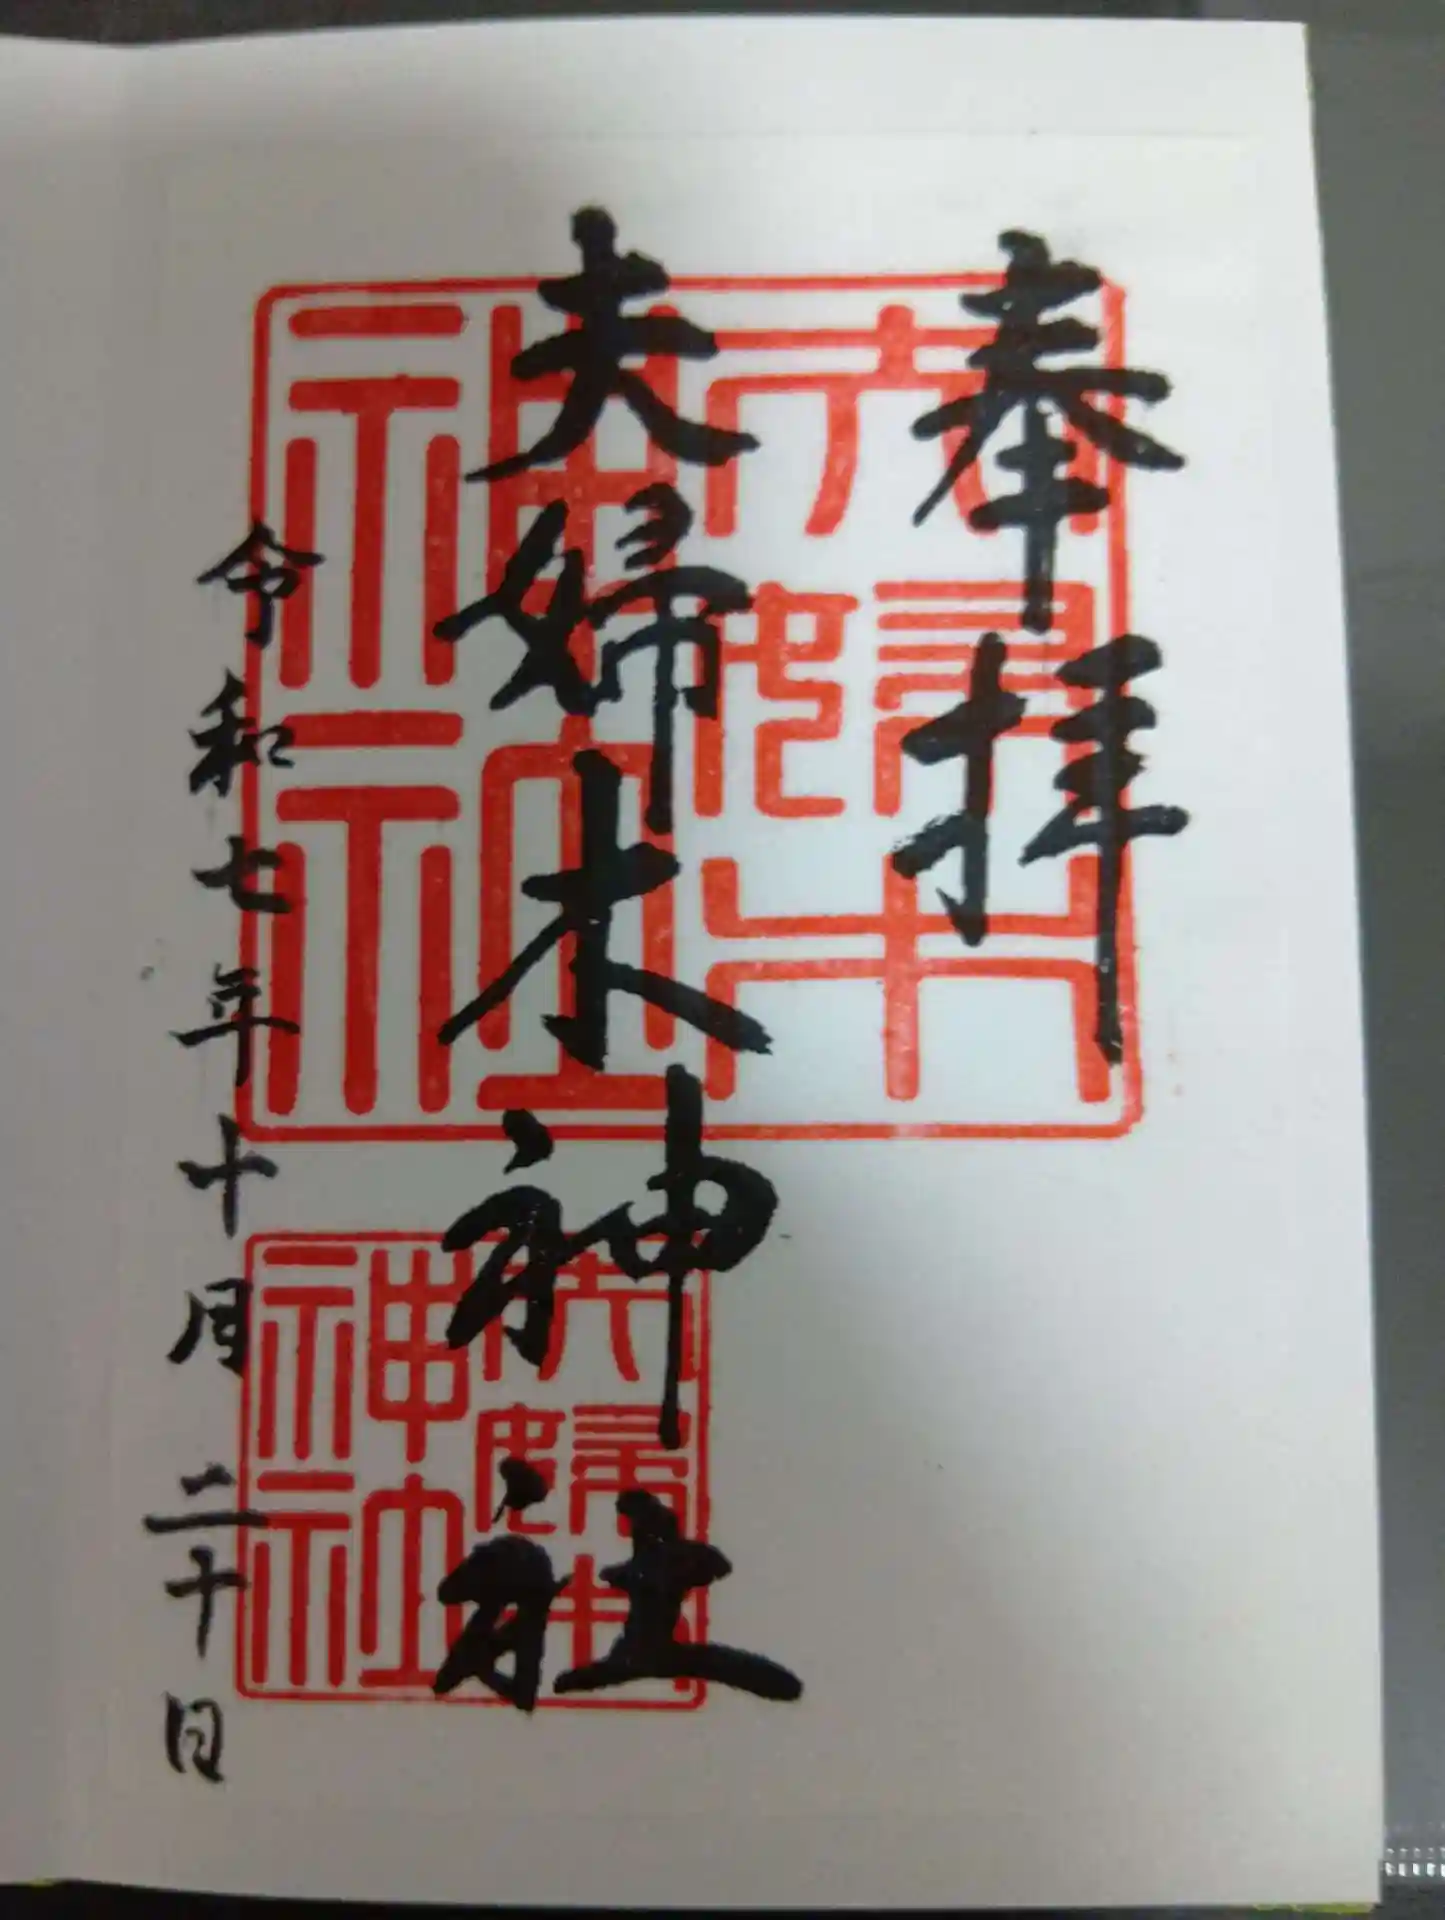 奉拝
夫婦木神社
令和七年十月二十日
夫婦木神社
夫婦木神社